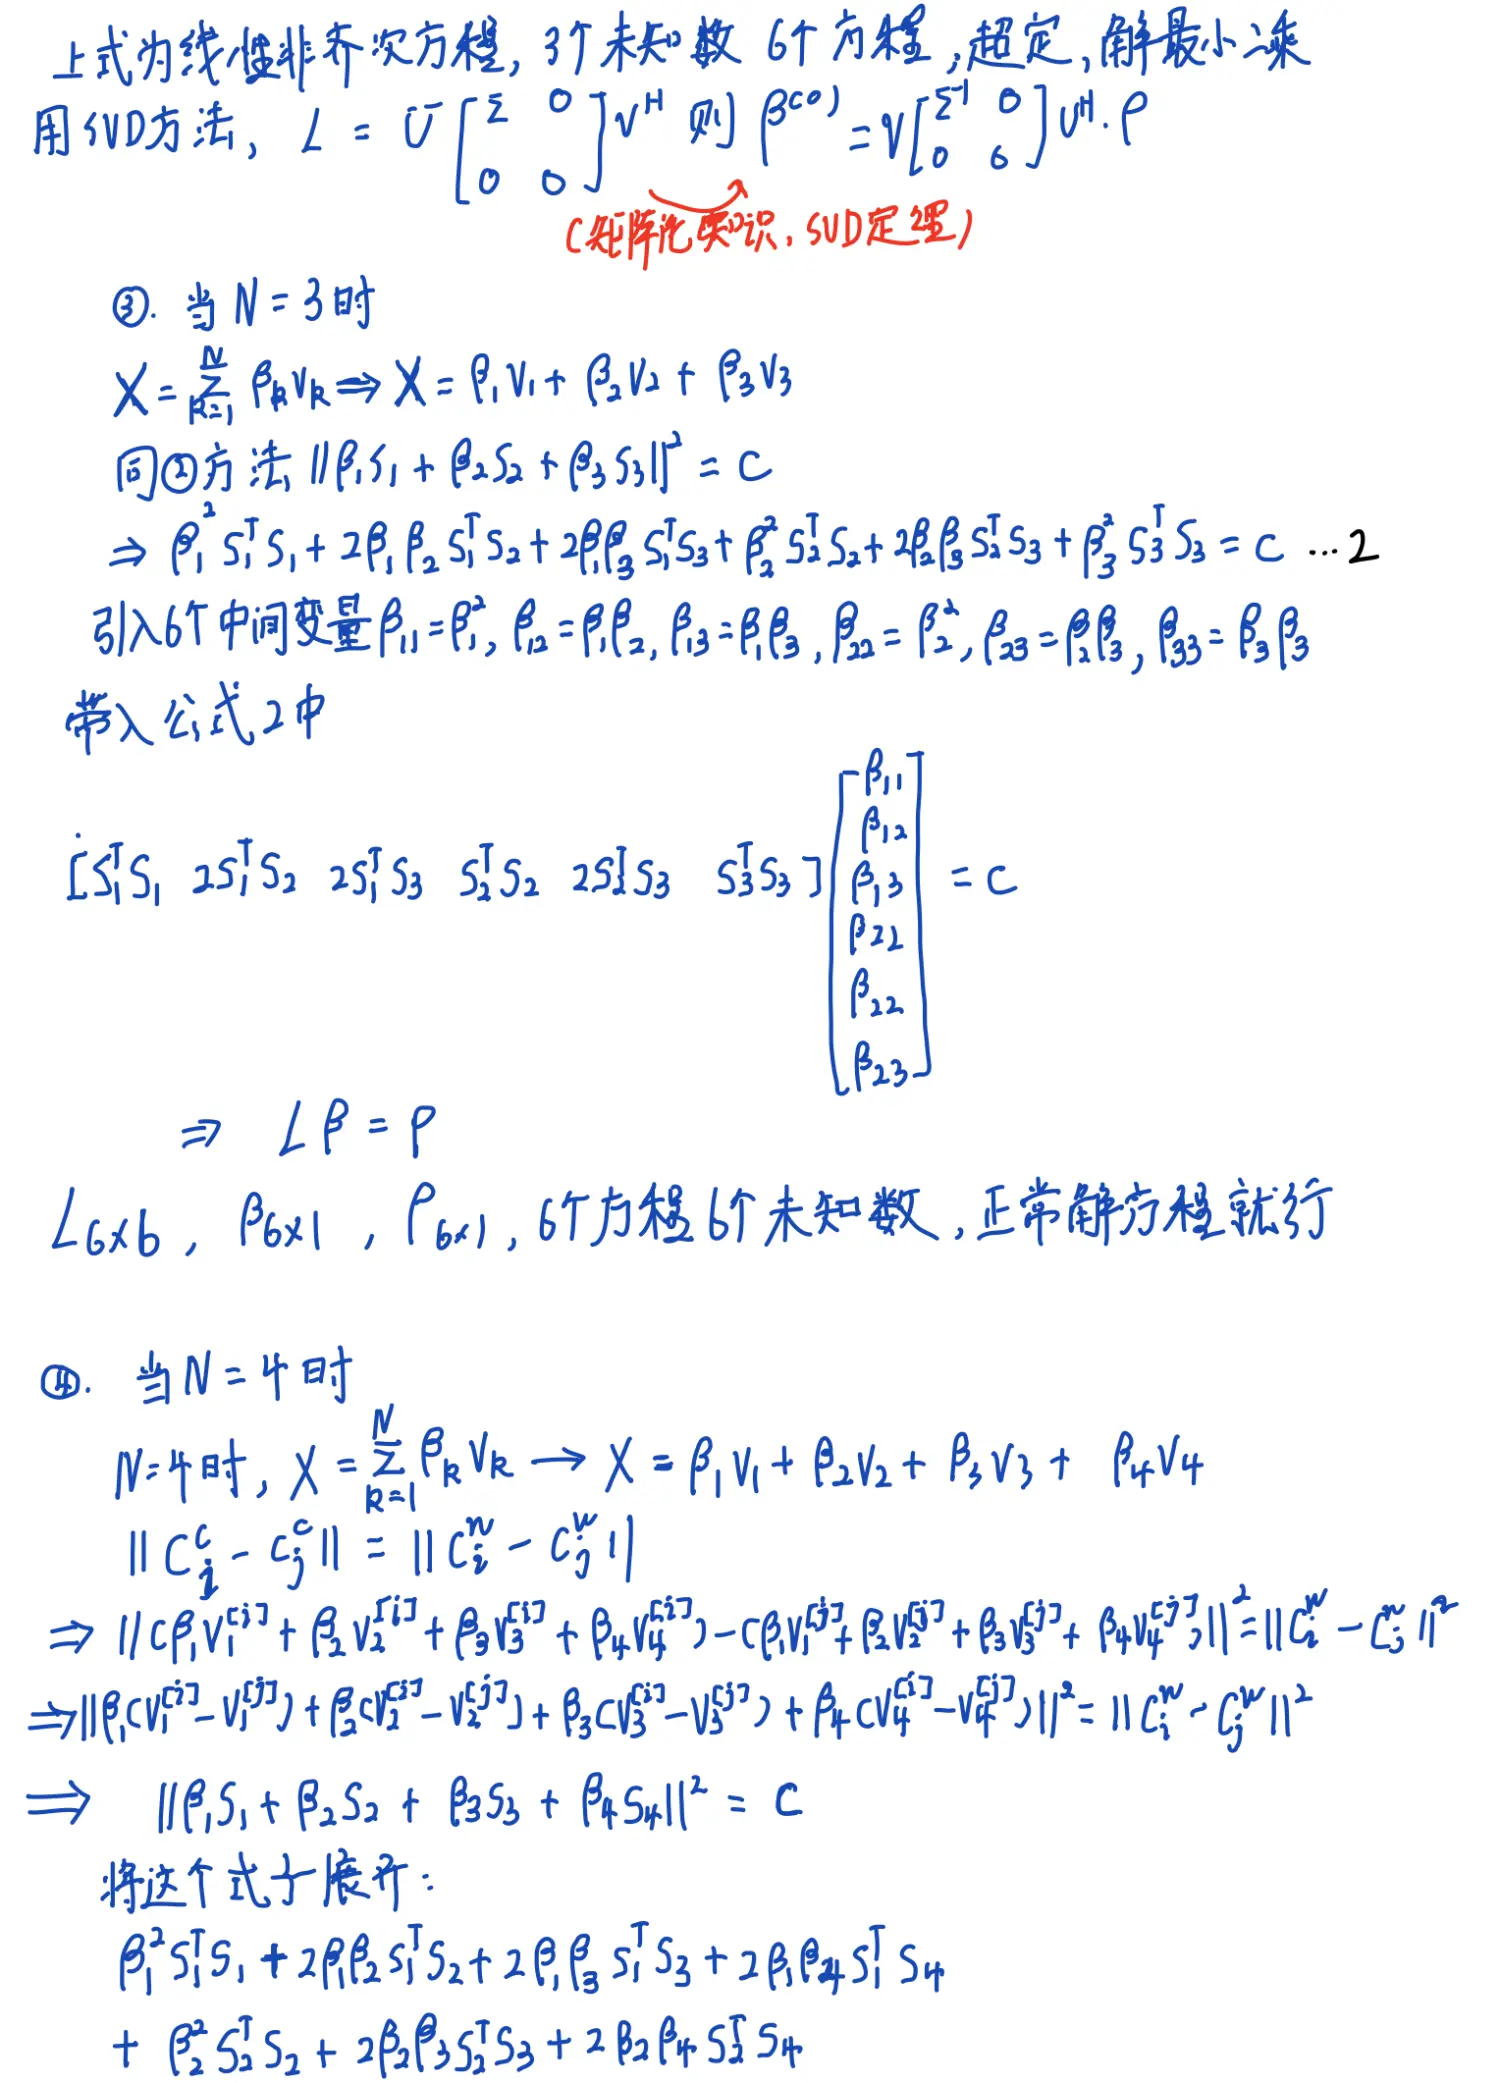 上式为线性非齐次方程, 3个未知数 6个方程, 超定, 解最小二乘
用SVD方法, L = U [Σ 0; 0 0] V^H 则 β^(0) = V [Σ^-1 0; 0 0] U^H · ρ
(矩阵论知识, SVD定理)
③. 当 N = 3 时
X = Σ_{k=1}^{N} β_k v_k ⇒ X = β_1 v_1 + β_2 v_2 + β_3 v_3
同②方法 ||β_1 S_1 + β_2 S_2 + β_3 S_3||^2 = C
⇒ β_1^2 S_1^T S_1 + 2β_1 β_2 S_1^T S_2 + 2β_1 β_3 S_1^T S_3 + β_2^2 S_2^T S_2 + 2β_2 β_3 S_2^T S_3 + β_3^2 S_3^T S_3 = C ...2
引入6个中间变量 β_11 = β_1^2, β_12 = β_1 β_2, β_13 = β_1 β_3, β_22 = β_2^2, β_23 = β_2 β_3, β_33 = β_3 β_3
带入公式2中
[S_1^T S_1 2S_1^T S_2 2S_1^T S_3 S_2^T S_2 2S_2^T S_3 S_3^T S_3] [β_11; β_12; β_13; β_22; β_22; β_23] = C
⇒ L β = ρ
L_6×6, β_6×1, ρ_6×1, 6个方程6个未知数, 正常解方程就行
④. 当 N = 4 时
N=4时, X = Σ_{k=1}^{N} β_k v_k → X = β_1 v_1 + β_2 v_2 + β_3 v_3 + β_4 v_4
||C_i^c - C_j^c|| = ||C_i^w - C_j^w||
⇒ ||(β_1 v_1^[i] + β_2 v_2^[i] + β_3 v_3^[i] + β_4 v_4^[i]) - (β_1 v_1^[j] + β_2 v_2^[j] + β_3 v_3^[j] + β_4 v_4^[j])||^2 = ||C_i^w - C_j^w||^2
⇒ ||β_1(v_1^[i] - v_1^[j]) + β_2(v_2^[i] - v_2^[j]) + β_3(v_3^[i] - v_3^[j]) + β_4(v_4^[i] - v_4^[j])||^2 = ||C_i^w - C_j^w||^2
⇒ ||β_1 S_1 + β_2 S_2 + β_3 S_3 + β_4 S_4||^2 = C
将这个式子展开:
β_1^2 S_1^T S_1 + 2β_1 β_2 S_1^T S_2 + 2β_1 β_3 S_1^T S_3 + 2β_1 β_4 S_1^T S_4
+ β_2^2 S_2^T S_2 + 2β_2 β_3 S_2^T S_3 + 2β_2 β_4 S_2^T S_4